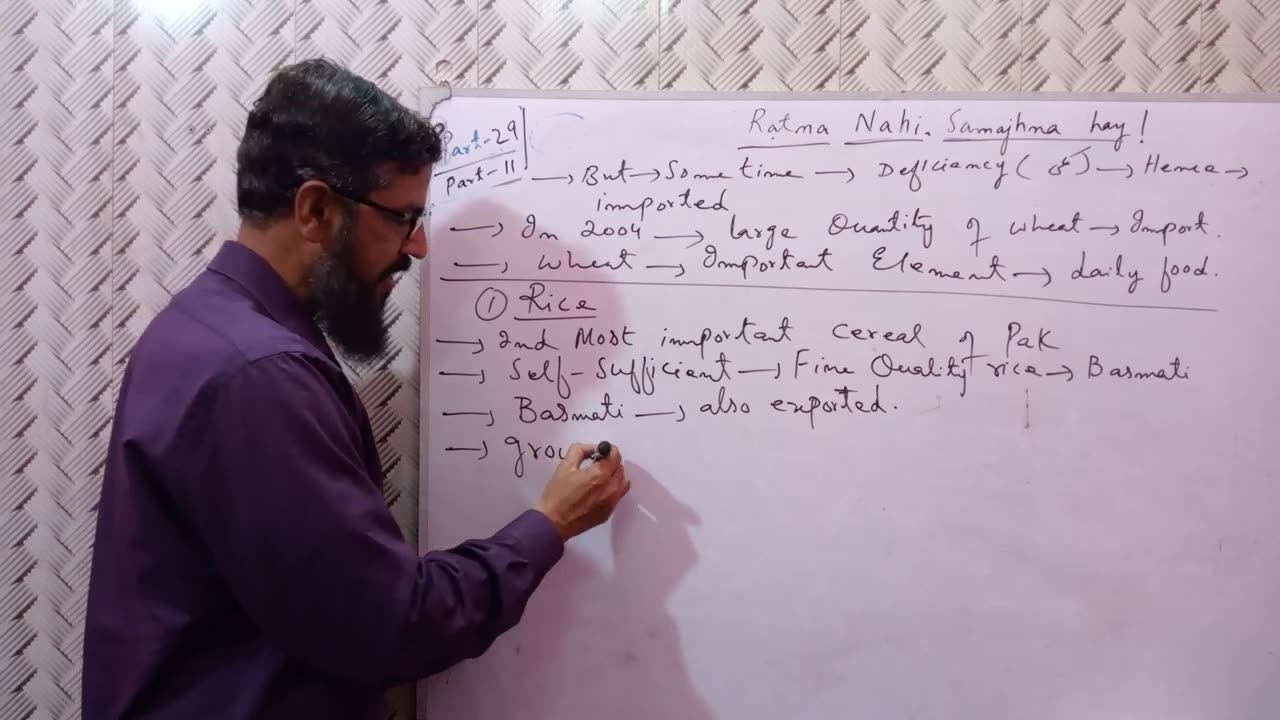 Part-29
Part-11
Ratma Nahi. Samajhna hay!
→ But → Some time → Deficiency ( ) → Hence →
imported
→ In 2004 → large Quantity of wheat → Import.
→ wheat → Important Element → daily food.
① Rice
→ 2nd Most important cereal of Pak
→ Self-Sufficient → Fine Quality rice → Basmati
→ Basmati → also exported.
→ grow